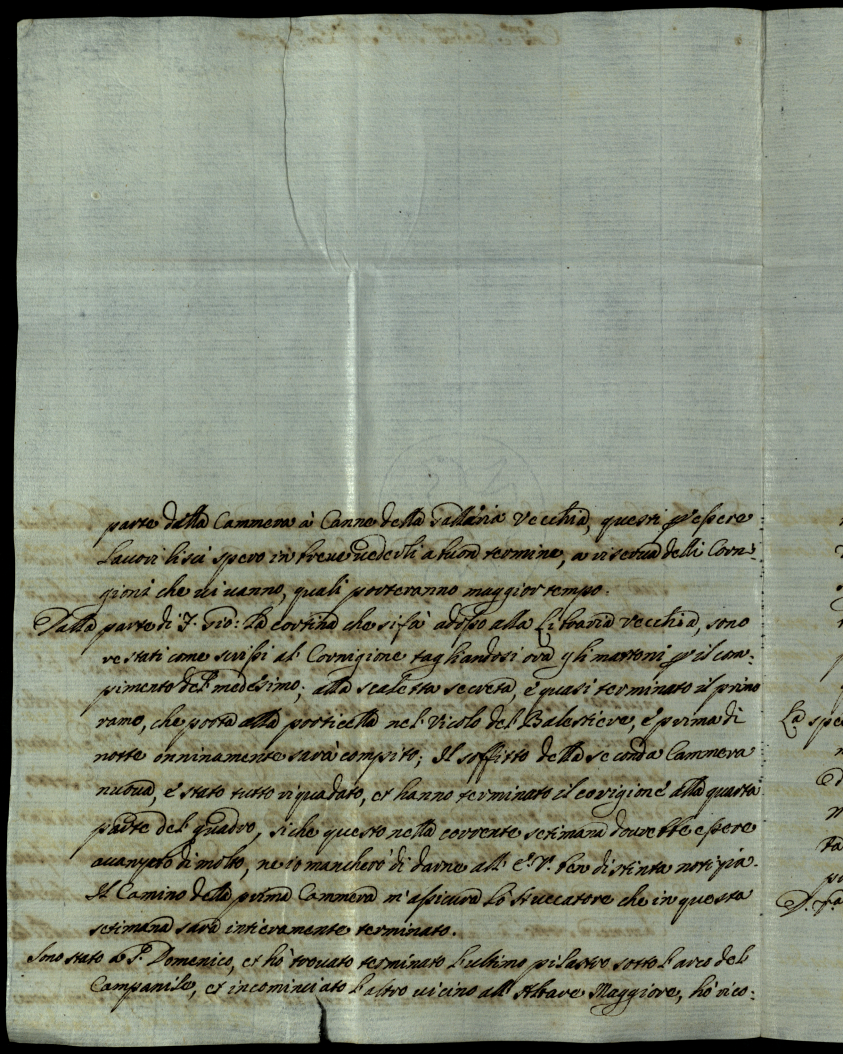 parte della Cammera à Canne della Gallaria Vecchia, questi p essere
Lavori lisci spero in breve vederli a buon termine, a riserva delli Corni-
gioni che vi vanno, quali porteranno maggior tempo.
Dalla parte di S. Gio: la cortina che si fà adosso alla Libraria Vecchia, sono
restati come scrissi al Cornigione tagliandosi ora gli mattoni p il com-
pimento del medesimo; alla scaletta secreta, è quasi terminato il primo
ramo, che porta alla porticella nel Vicolo del Balestiere, e prima di
notte onninamente sarà compito; Il soffitto della seconda Cammera
nuova, è stato tutto riquadrato, et hanno terminato il cornigione alla quarta
parte del quadro, siche questo nella corrente setimana dovrebbe essere
avanzato di molto, ne io mancherò di darne all' E. V. ben distinta notizia.
Il Camino della prima Cammera m'assicura Lo stuccatore che in questa
setimana sarà intieramente terminato.
Sono stato a S. Domenico, et hò trovato terminato l'ultimo pilastro sotto l'arco del
Campanile, et incominciato l'altro vicino all' Altare Maggiore, hò rico-
La spe